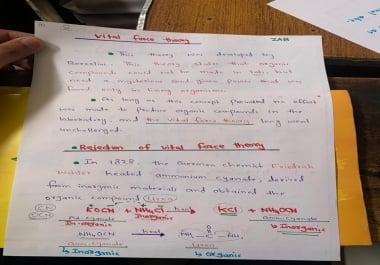 Vital force theory
• This theory was developed by
Berzelius. This theory states that organic
compounds could not be made in lab, but
need a mysterious and given power that was
found only in living organism.
• As long as this concept no effort
was made to produce organic compounds in the
laboratory and the vital force theory long went
unchallenged.
• Rejection of vital force theory
• In 1828, the German chemist Friedrich
Wohler heated ammonium cyanate, derived
from inorganic materials and obtained the
organic compound (Urea)
KOCN + NH4Cl heat KCl + NH4OCN
In-organic Inorganic Amm. Cyanate
Inorganic
NH4OCN heat NH2 - C - NH2
O
Amm. Cyanate Urea
Inorganic Organic